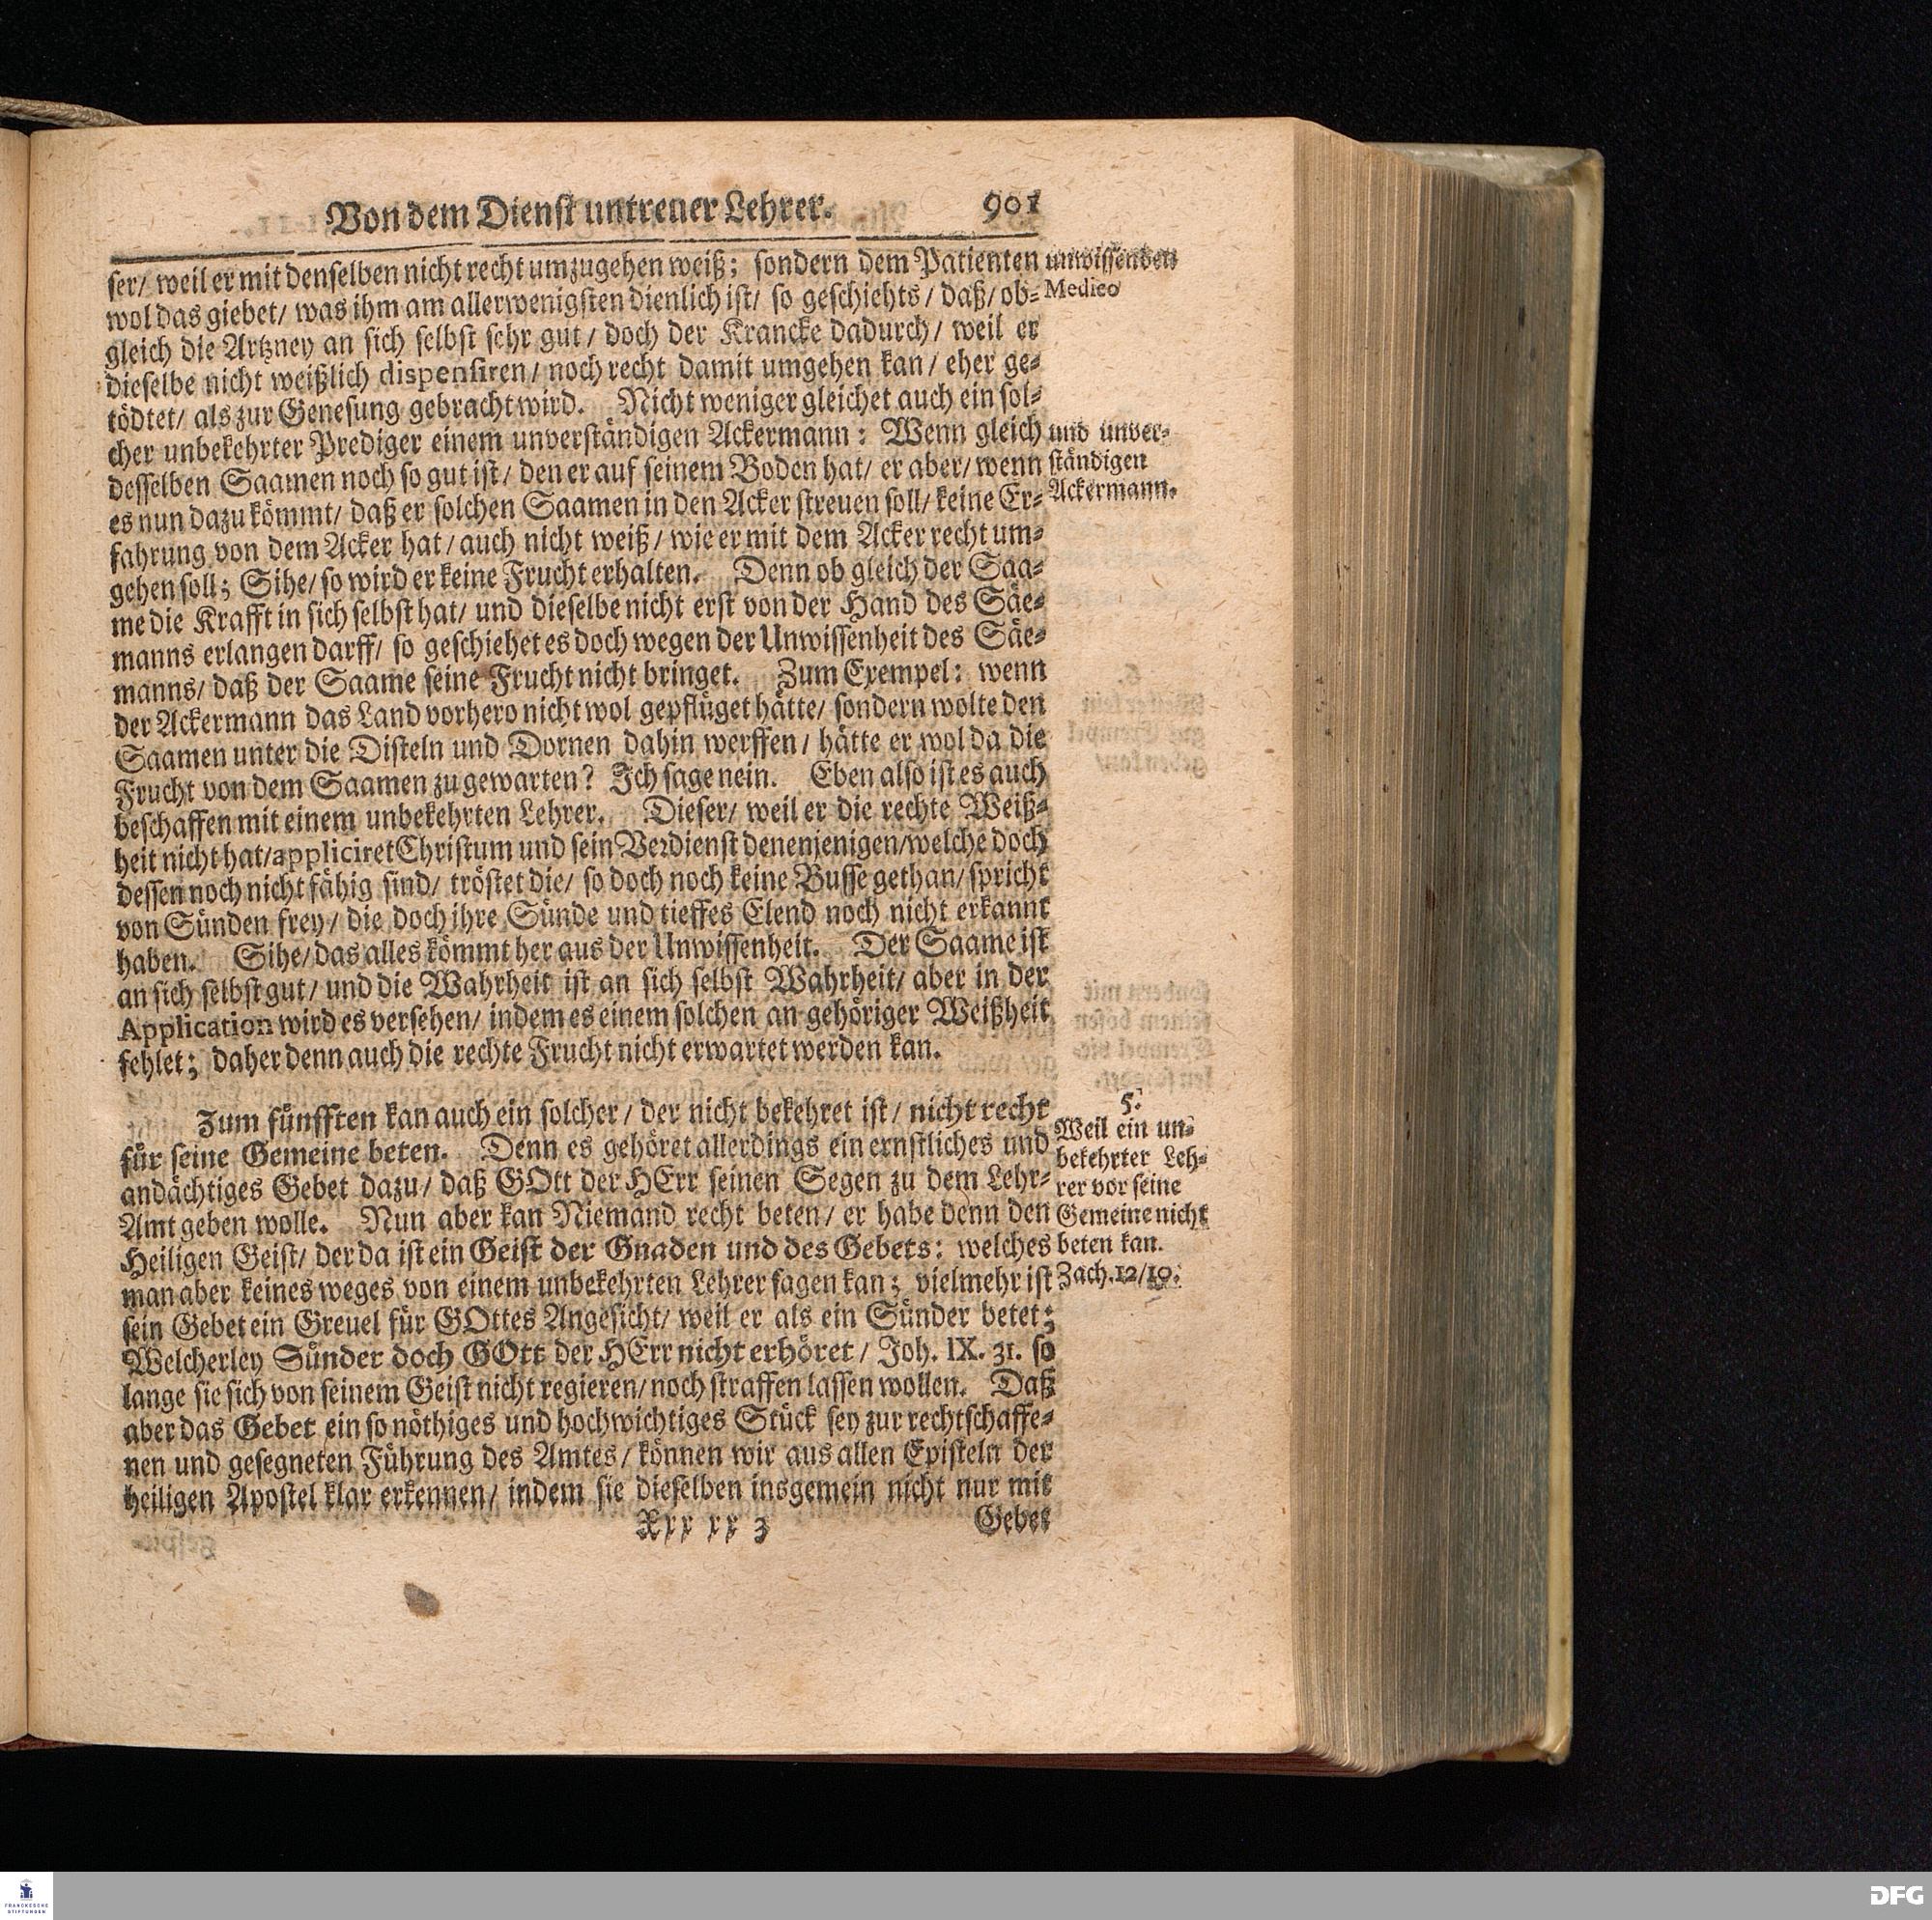 Von dem Dienst untreuer Lehrer. 901
ser/ weil er mit denselben nicht recht umzugehen weiß; sondern dem Patienten
wol das giebet/ was ihm am allerwenigsten dienlich ist/ so geschiehts/ daß/ ob-
gleich die Artzney an sich selbst sehr gut/ doch der Krancke dadurch/ weil er
dieselbe nicht weißlich dispensiren/ noch recht damit umgehen kan/ eher ge-
tödtet/ als zur Genesung gebracht wird. Nicht weniger gleichet auch ein sol-
cher unbekehrter Prediger einem unverständigen Ackermann: Wenn gleich
desselben Saamen noch so gut ist/ den er auf seinem Boden hat/ er aber/ wenn
es nun dazu kömmt/ daß er solchen Saamen in den Acker streuen soll/ keine Er-
fahrung von dem Acker hat/ auch nicht weiß/ wie er mit dem Acker recht um-
gehen soll; Sihe/ so wird er keine Frucht erhalten. Denn ob gleich der Saa-
me die Krafft in sich selbst hat/ und dieselbe nicht erst von der Hand des Säe-
manns erlangen darff/ so geschiehet es doch wegen der Unwissenheit des Säe-
manns/ daß der Saame seine Frucht nicht bringet. Zum Exempel: wenn
der Ackermann das Land vorhero nicht wol gepflüget hätte/ sondern wolte den
Saamen unter die Disteln und Dornen dahin werffen/ hätte er wol da die
Frucht von dem Saamen zu gewarten? Ich sage nein. Eben also ist es auch
beschaffen mit einem unbekehrten Lehrer. Dieser/ weil er die rechte Weiß-
heit nicht hat/ appliciret Christum und sein Verdienst denenjenigen/ welche doch
dessen noch nicht fähig sind/ tröstet die/ so doch noch keine Busse gethan/ spricht
von Sünden frey/ die doch ihre Sünde und tieffes Elend noch nicht erkannt
haben. Sihe/ das alles kömmt her aus der Unwissenheit. Der Saame ist
an sich selbst gut/ und die Wahrheit ist an sich selbst Wahrheit/ aber in der
Application wird es versehen/ indem es einem solchen an gehöriger Weißheit
fehlet; daher denn auch die rechte Frucht nicht erwartet werden kan.
Zum fünfften kan auch ein solcher/ der nicht bekehret ist/ nicht recht
für seine Gemeine beten. Denn es gehöret allerdings ein ernstliches und
andächtiges Gebet dazu/ daß GOtt der HErr seinen Segen zu dem Lehr-
Amt geben wolle. Nun aber kan Niemand recht beten/ er habe denn den
Heiligen Geist/ der da ist ein Geist der Gnaden und des Gebets: welches
man aber keines weges von einem unbekehrten Lehrer sagen kan; vielmehr ist
sein Gebet ein Greuel für GOttes Angesicht/ weil er als ein Sünder betet;
Welcherley Sünder doch GOtt der HErr nicht erhöret/ Joh. IX. 31. so
lange sie sich von seinem Geist nicht regieren/ noch straffen lassen wollen. Daß
aber das Gebet ein so nöthiges und hochwichtiges Stück sey zur rechtschaffe-
nen und gesegneten Führung des Amtes/ können wir aus allen Episteln der
heiligen Apostel klar erkennen/ indem sie dieselben insgemein nicht nur mit
Xxx xx 3 Gebet
unwissenden
Medico
und unver-
ständigen
Ackermann.
5.
Weil ein un-
bekehrter Leh-
rer vor seine
Gemeine nicht
beten kan.
Zach.12/10.
FRANCKESCHE
STIFTUNGEN
DFG